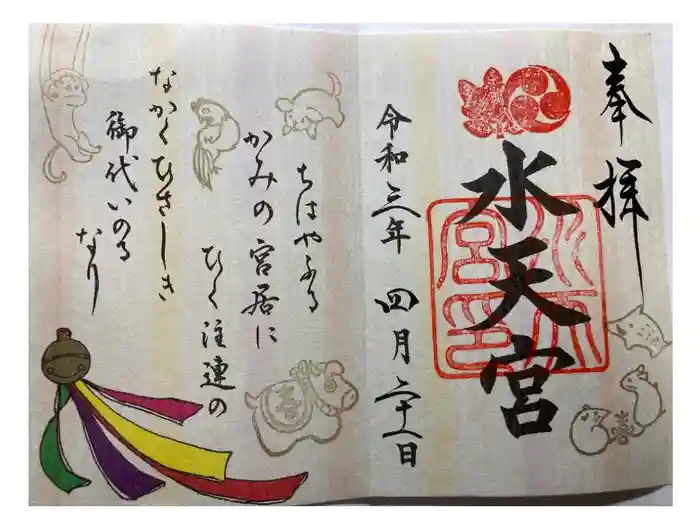 奉拝
水天宮
水天宮印
令和三年 四月二十一日
ちはやふる
かみの宮居に
ひく注連の
なかくひさしき
御代いのる
なり